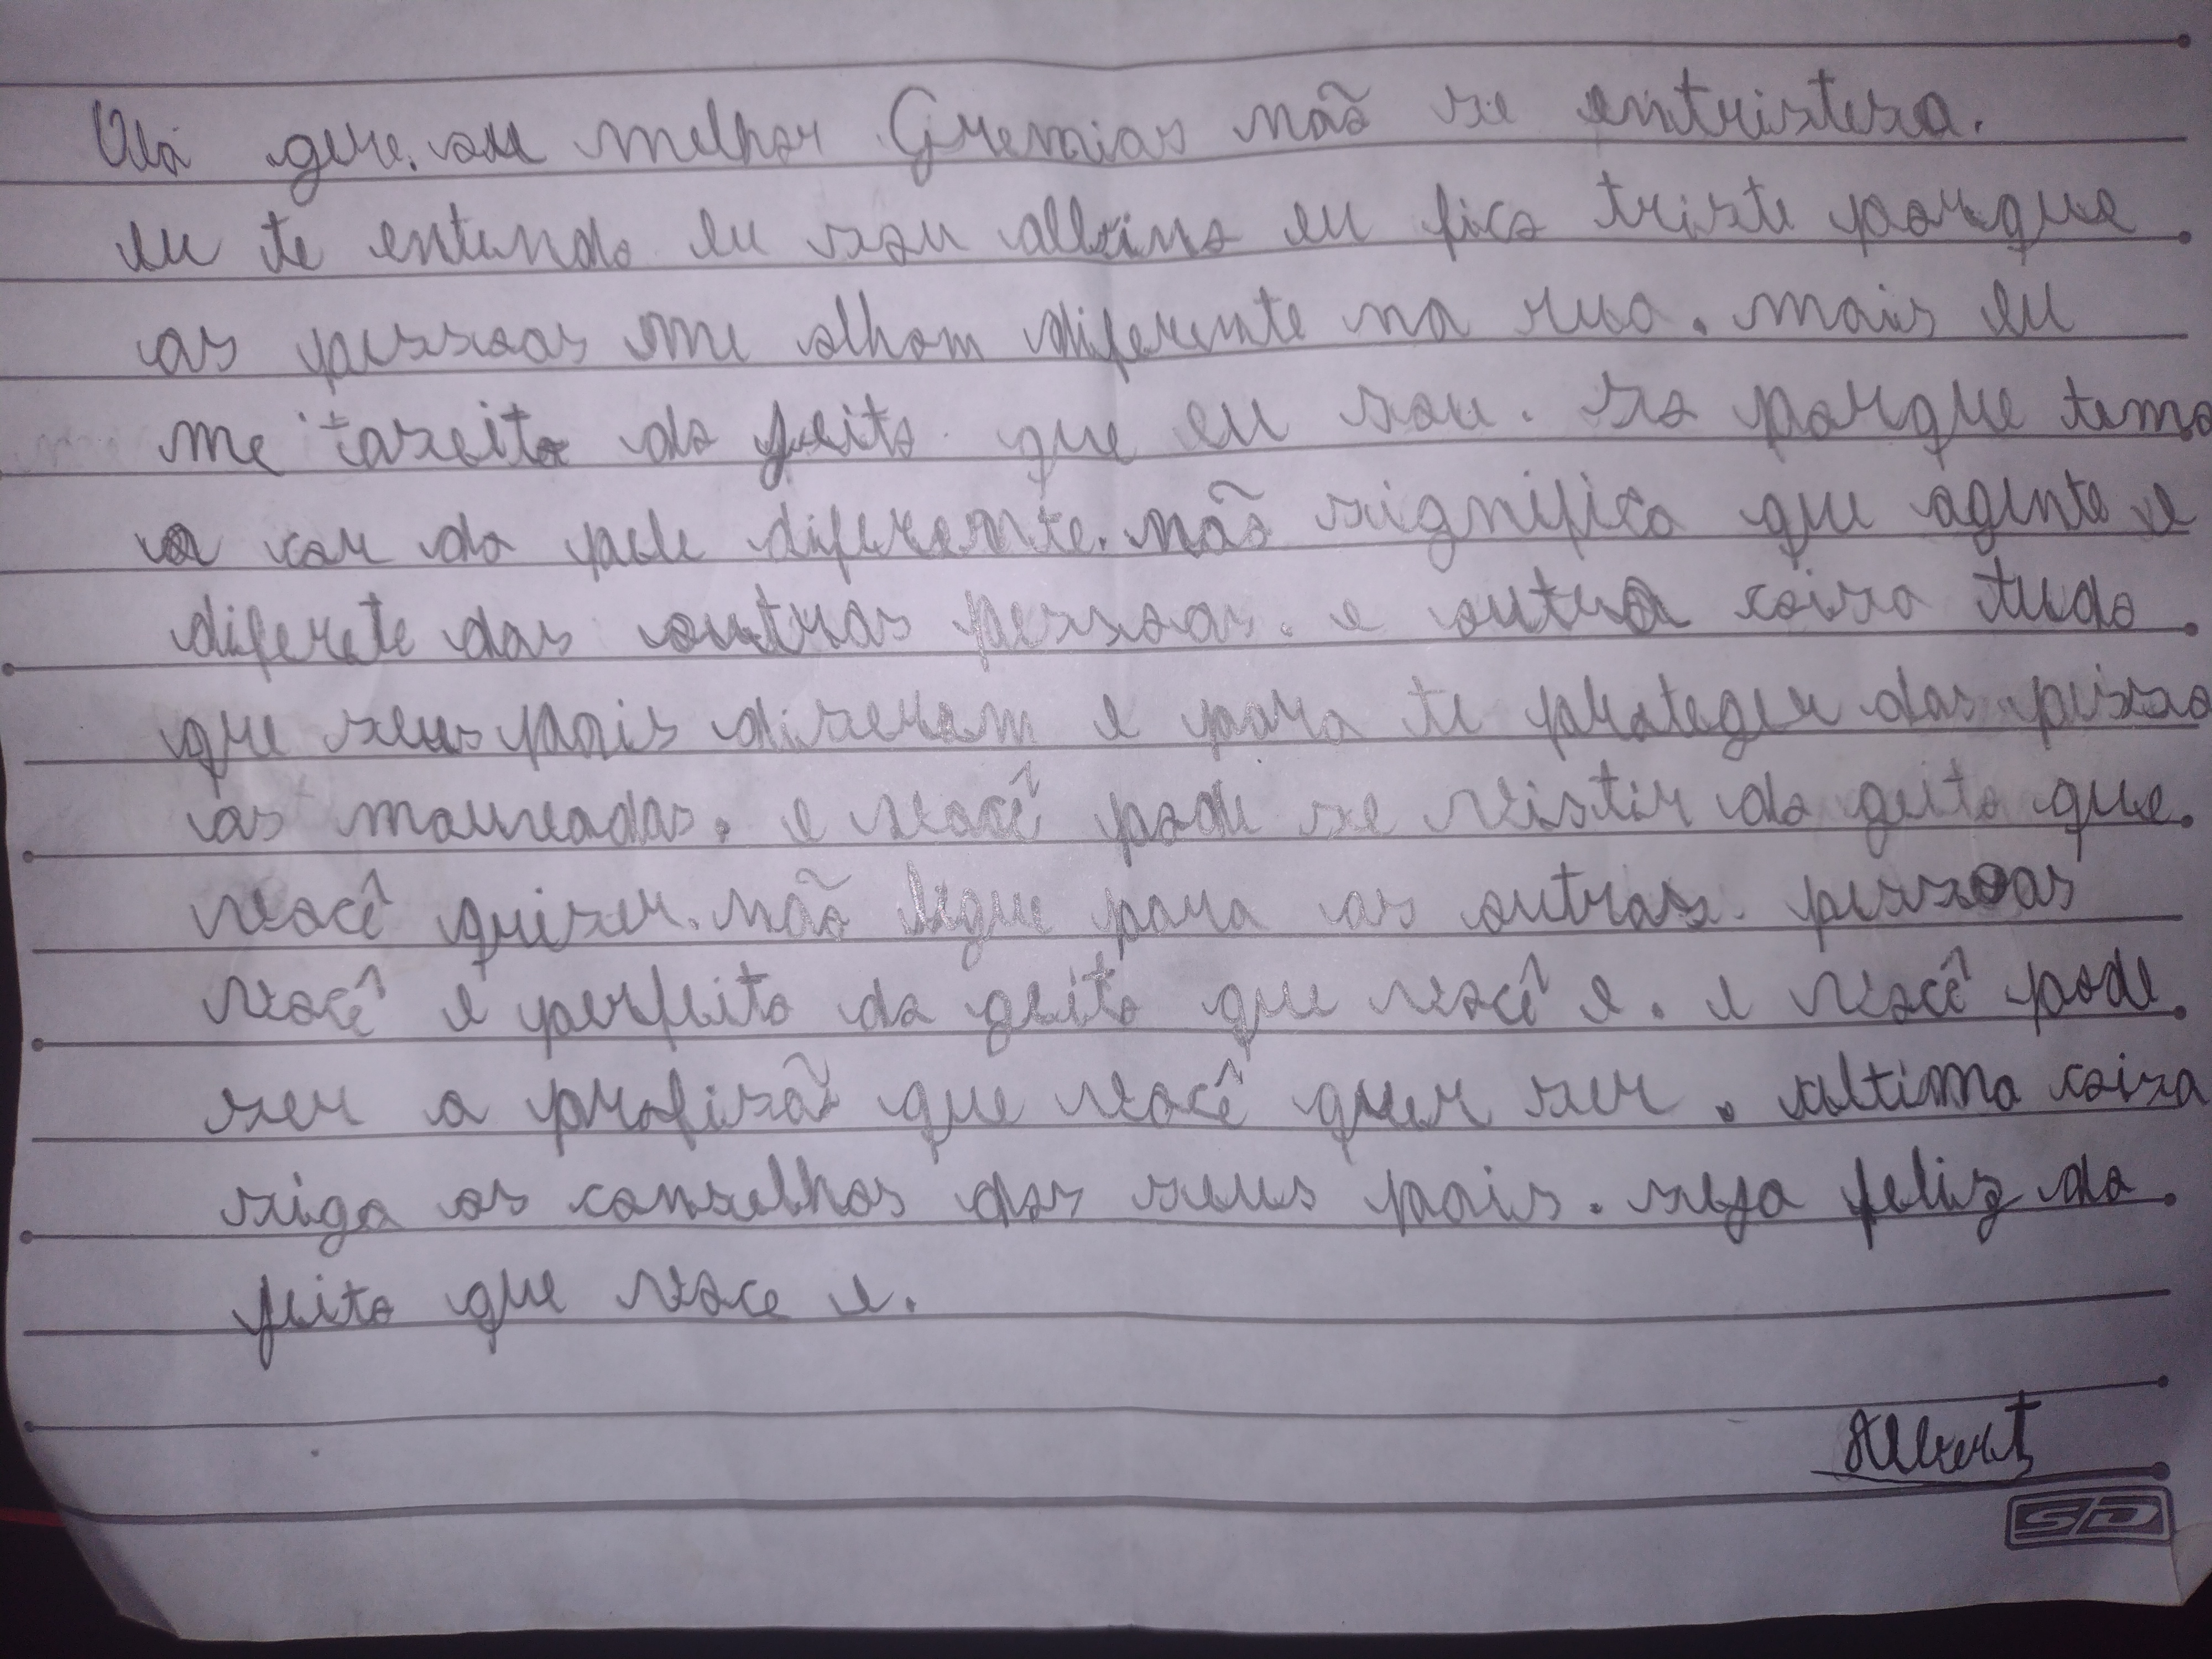 Olá gere. ou melhor Gremias não se entristesa.
eu te entendo eu sou albino eu fico triste porque
as pessoas me olham diferente na rua. mais eu
me aseito do jeito que eu sou. so porque temo
a cor da pele diferente. não significa que agente e
diferete das outras pessoas. e outra coisa tudo
que seus pais diseram e para te proteger das pesso
as mauvadas. e você pode se vistir do geito que
você quiser. não ligue para as outras pessoas
você e perfeito do geito que você e. e você pode
ser a profisão que você quer ser. ultima coisa
siga os conselhos dos seus pais. seja feliz do
jeito que voce e.
Albert
SD